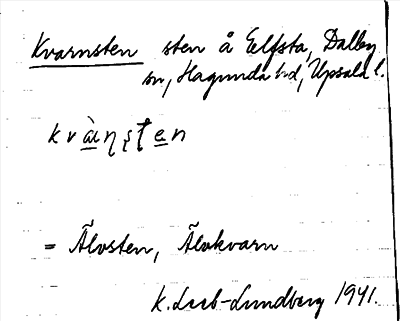 Kvarnsten sten å Eelfsta, Dalby
sn, Hagunda hd, Upsala l.
kvàɳʂʈen
= Älvsten, Älvkvarn
K. Leeb-Lundberg 1941.